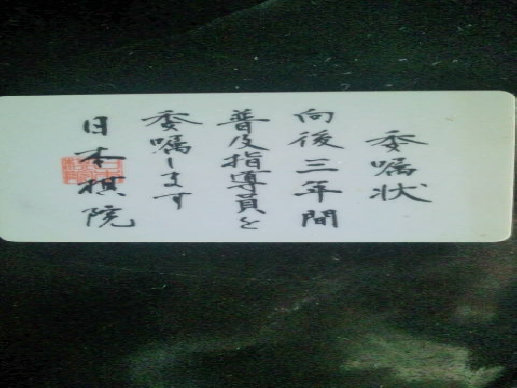 委嘱状
向後三年間
普及指導員を
委嘱します
日本棋院